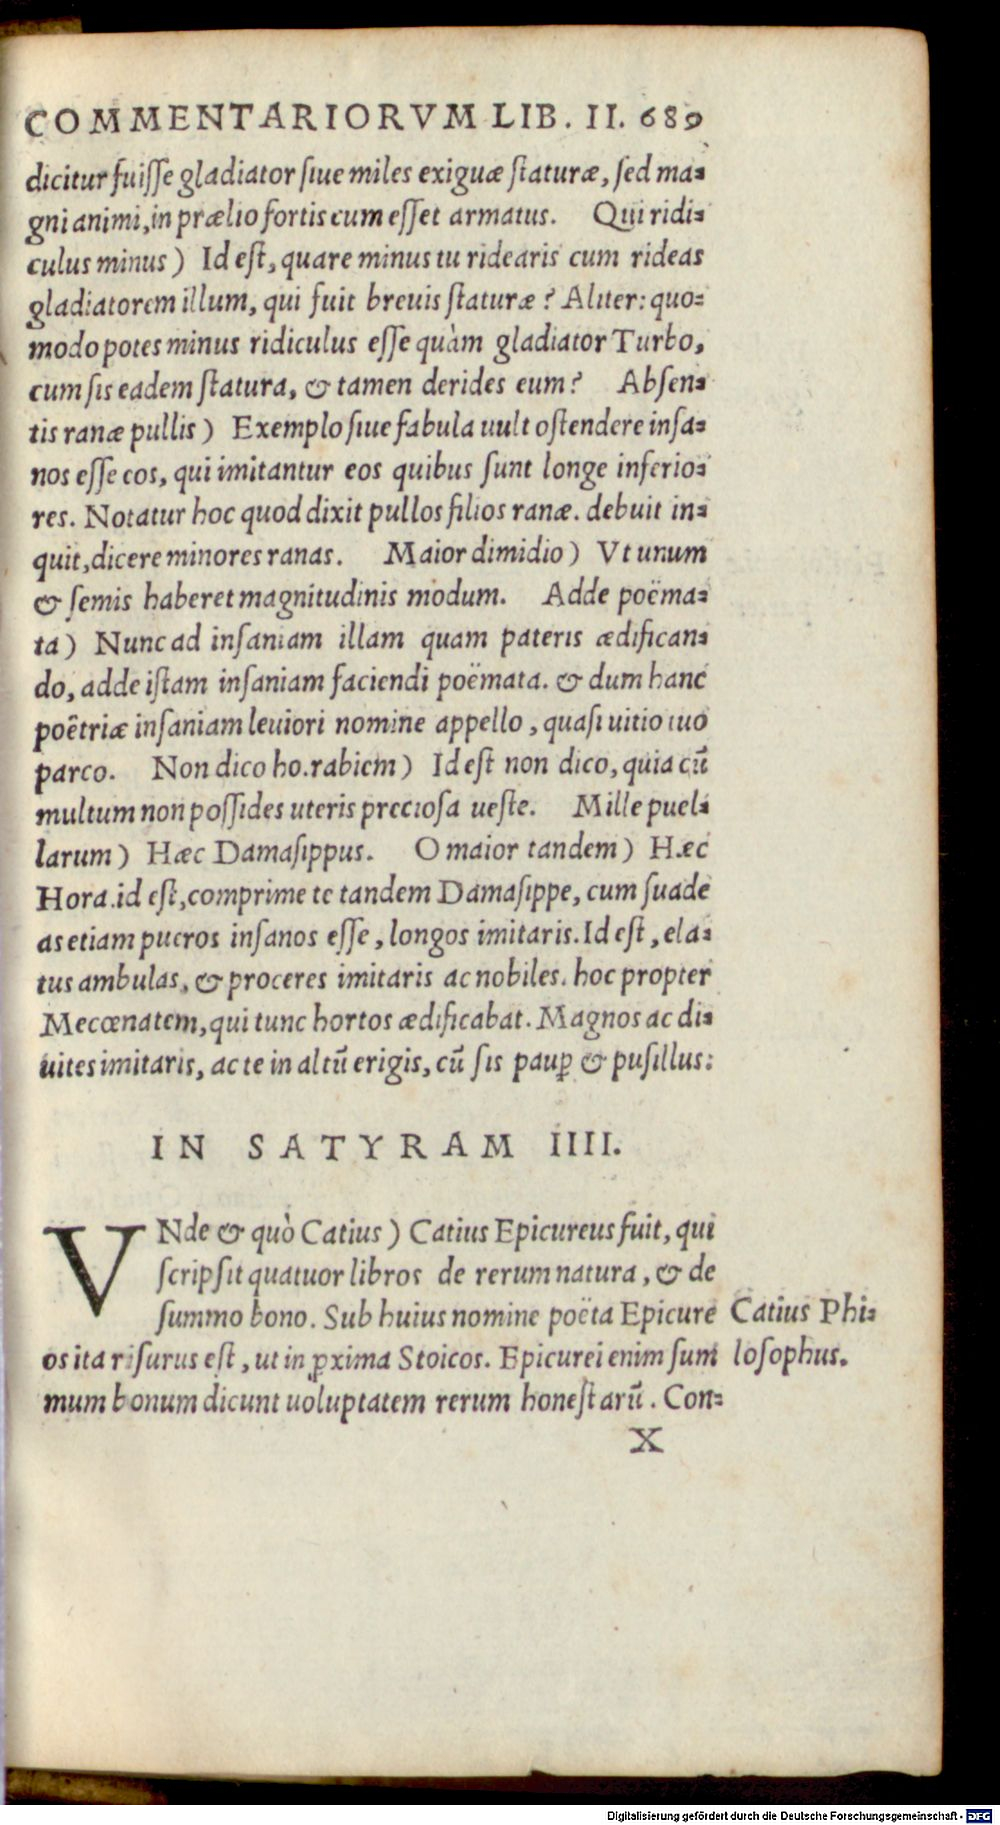 COMMENTARIORVM LIB. II. 689
dicitur fuiſſe gladiator ſiue miles exiguæ ſtaturæ, ſed ma-
gni animi, in prælio fortis cum eſſet armatus. Qui ridi-
culus minus) Id eſt, quare minus tu ridearis cum rideas
gladiatorem illum, qui fuit breuis ſtaturæ? Aliter: quo-
modo potes minus ridiculus eſſe quàm gladiator Turbo,
cum ſis eadem ſtatura, & tamen derides eum? Abſen-
tis ranæ pullis) Exemplo ſiue fabula uult oſtendere inſa-
nos eſſe eos, qui imitantur eos quibus ſunt longe inferio-
res. Notatur hoc quod dixit pullos filios ranæ. debuit in-
quit, dicere minores ranas. Maior dimidio) Vt unum
& ſemis haberet magnitudinis modum. Adde poëma-
ta) Nunc ad inſaniam illam quam pateris ædifican-
do, adde iſtam inſaniam faciendi poëmata. & dum hanc
poëtriæ inſaniam leuiori nomine appello, quaſi uitio tuo
parco. Non dico ho.rabiem) Id eſt non dico, quia cū
multum non poſſides uteris precioſa ueſte. Mille puel-
larum) Hæc Damaſippus. O maior tandem) Hæc
Hora.id eſt, comprime te tandem Damaſippe, cum ſuade
as etiam pueros inſanos eſſe, longos imitaris. Id eſt, ela-
tus ambulas, & proceres imitaris ac nobiles. hoc propter
Mecœnatem, qui tunc hortos ædificabat. Magnos ac di-
uites imitaris, ac te in altū erigis, cū ſis paup̱ & puſillus:
IN SATYRAM IIII.
VNde & quò Catius) Catius Epicureus fuit, qui
ſcripſit quatuor libros de rerum natura, & de
ſummo bono. Sub huius nomine poëta Epicure
os ita riſurus eſt, ut in ꝓxima Stoicos. Epicurei enim ſum
mum bonum dicunt uoluptatem rerum honeſtarū. Con-
X
Catius Phi-
loſophus.
Digitalisierung gefördert durch die Deutsche Forschungsgemeinschaft - DFG